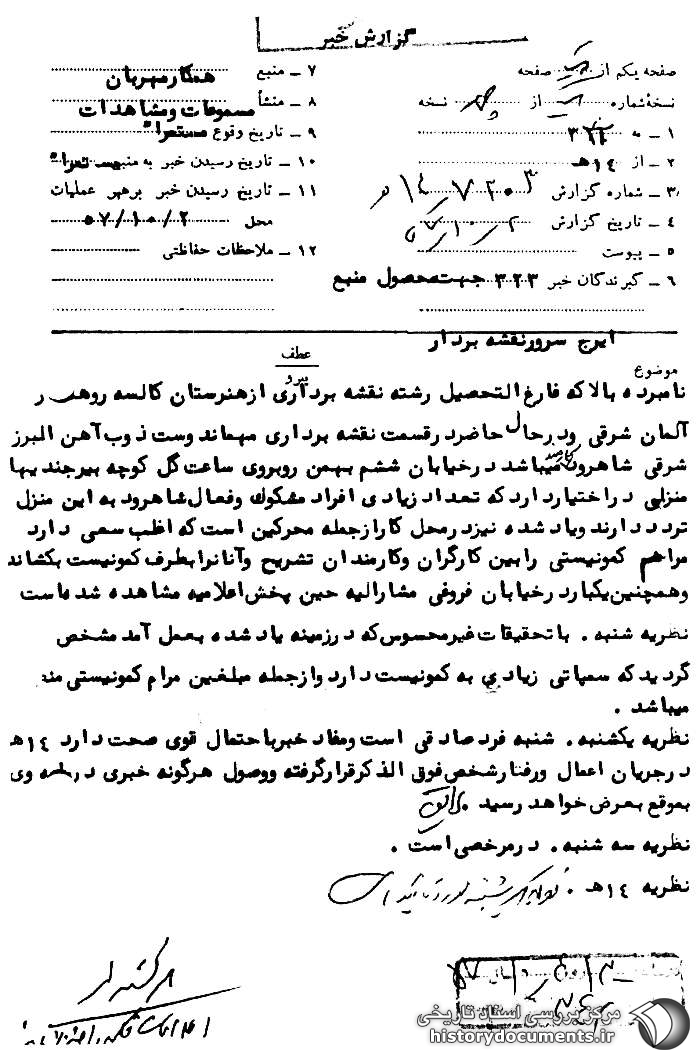 گزارش خبر
صفحه یکم از یک صفحه
نسخه شماره از نسخه
۱ ـ به ۳۲۲
۲ ـ از ۱۴هـ
۳ ـ شماره گزارش ۱۴/۷۲۰۳هـ
۴ ـ تاریخ گزارش ۵۷/۱۰/۲
۵ ـ پیوست
۶ ـ گیرندگان خبر ۳۲۳ جهت محصول منبع
۷ ـ منبع همکار مهربان
۸ ـ منشأ مسموعات و مشاهدات
۹ ـ تاریخ وقوع مستمرا"
۱۰ ـ تاریخ رسیدن خبر به منبع مستمرا"
۱۱ ـ تاریخ رسیدن خبر برهبر عملیات
محل ۵۷/۱۰/۲
۱۲ ـ ملاحظات حفاظتی
ایرج سرور نقشه بردار
موضوع
عطف
پیرو
نامبرده بالا که فارغ التحصیل رشته نقشه برداری از هنرستان کالسه روهه در
آلمان شرقی و در حال حاضر در قسمت نقشه برداری مهماندوست ذوب آهن البرز
شرقی شاهرود میباشد در خیابان ششم بهمن روبروی ساعت گل کوچه بیرجندیها
منزلی در اختیار دارد که تعداد زیادی افراد مشکوک و فعال شاهرود به این منزل
تردد دارند و یاد شده نیز در محل کار از جمله محرکین است که اغلب سعی دارد
مراهم کمونیستی را بین کارگران و کارمندان تشریح و آنانرا بطرف کمونیست بکشاند
و همچنین یکبار در خیابان فروغی مشارالیه حین پخش اعلامیه مشاهده شده است
نظریه شنبه . با تحقیقات غیر محسوس که در زمینه یاد شده بعمل آمد مشخص
گردید که سمپاتی زیادی به کمونیست دارد و از جمله مبلغین مرام کمونیستی
میباشد .
نظریه یکشنبه . شنبه فرد صادقی است و مفاد خبر با احتمال قوی صحت دارد ۱۴هـ
در جریان اعمال و رفتار شخص فوق الذکر قرار گرفته و وصول هرگونه خبری در رابطه وی
بموقع بعرض خواهد رسید .
نظریه سه شنبه . در مرخصی است .
نظریه ۱۴هـ . نظریه یکشنبه مورد تأیید است
مرکز بررسی اسناد تاریخی
historydocuments.ir